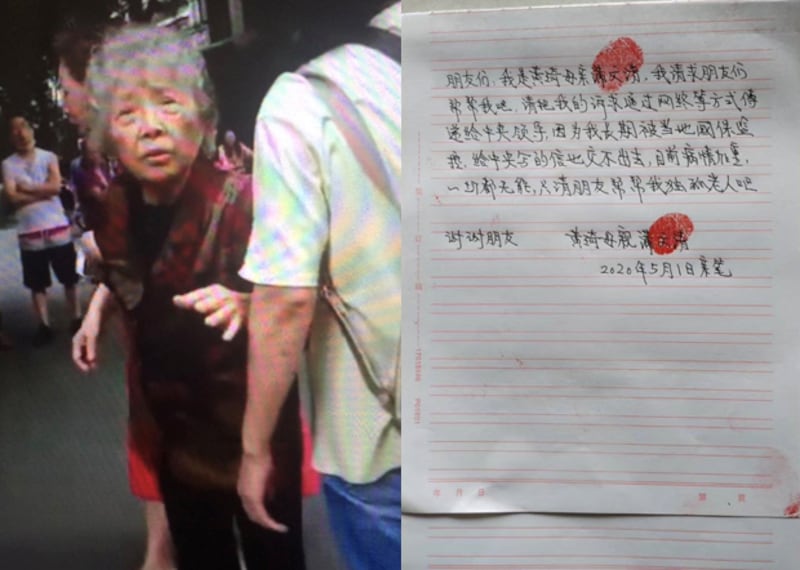 朋友们，我是黄琦母亲蒲文清，我请求朋友们
帮帮我吧，请把我的诉求通过网络等方式传
递给中央领导，因为我长期被当地国保监
视，给中央写的信也交不出去，目前病情加重，
一切都无能，只请朋友帮帮我独孤老人吧
谢谢朋友 黄琦母亲蒲文清
2020年5月1日亲笔
年 月 日